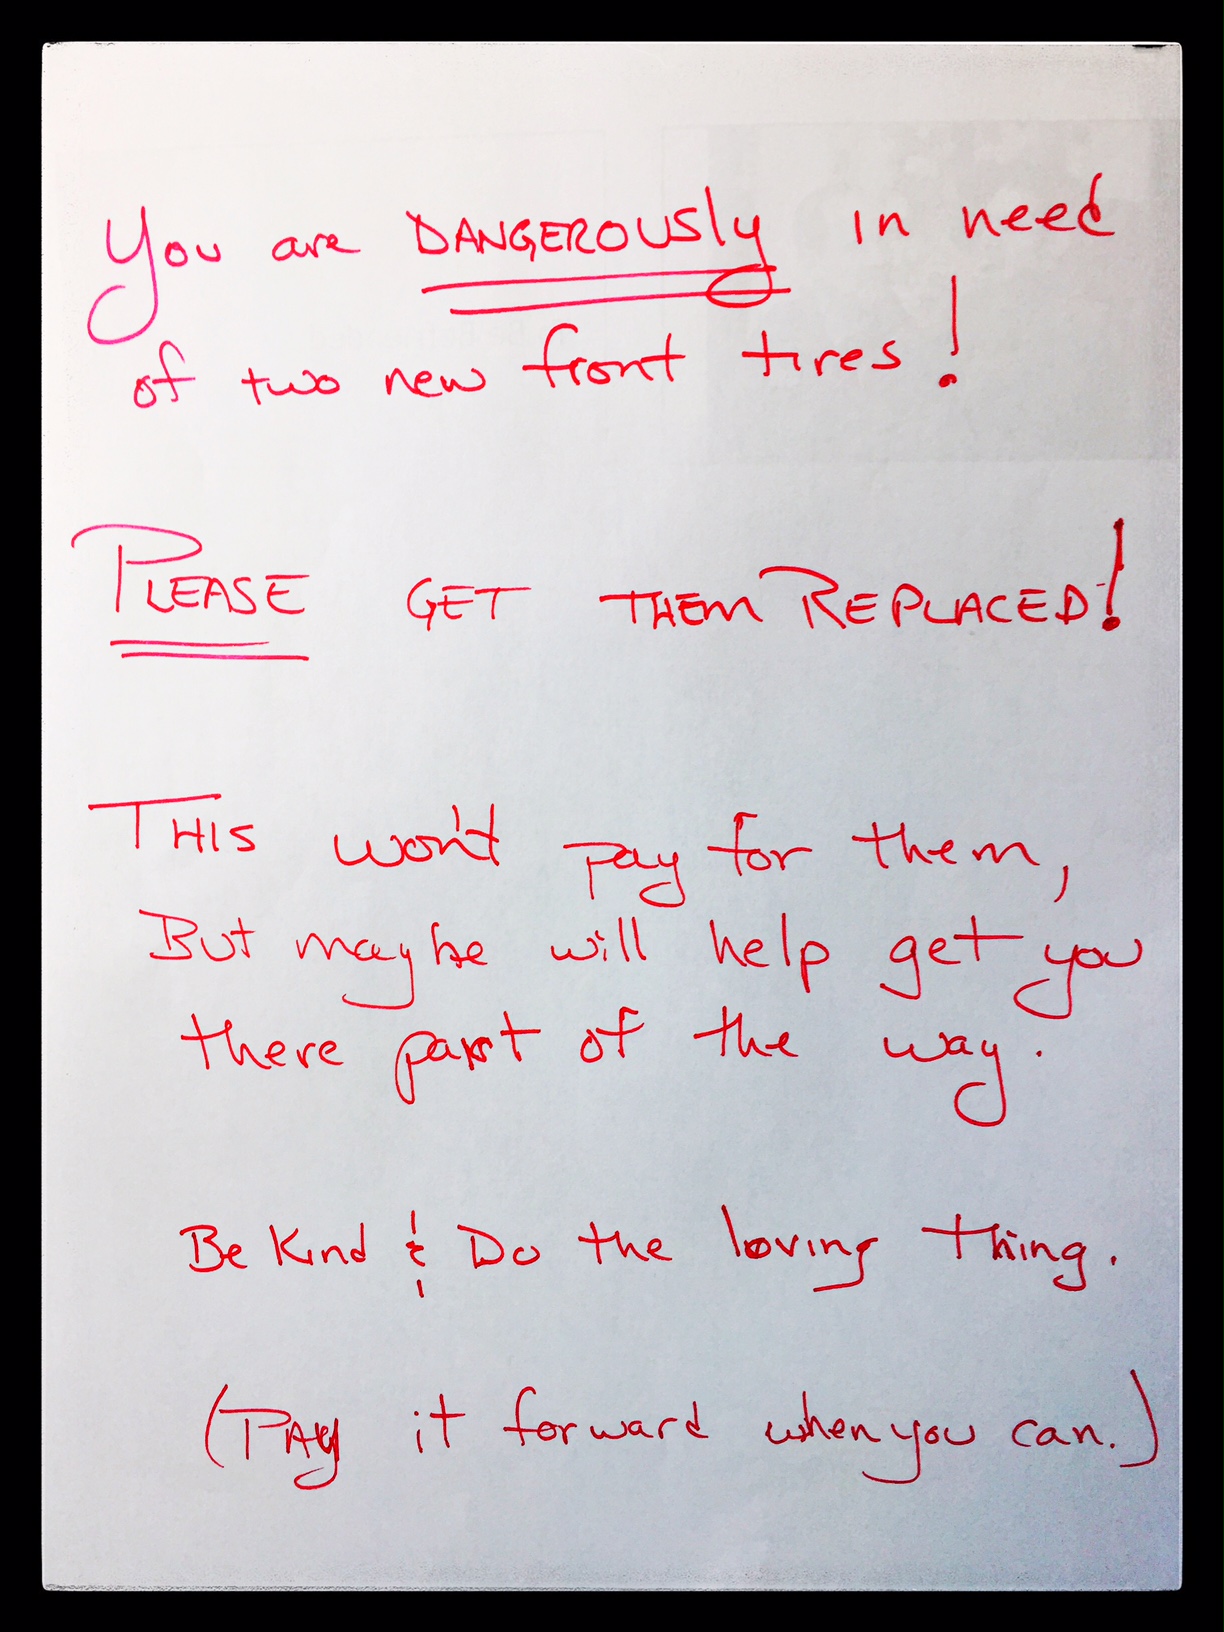 You are DANGEROUSly in need
of two new front tires!
PLEASE GET THEM REPLACED!
THIS won't pay for them,
But maybe will help get you
there part of the way.
Be Kind & Do the loving thing.
(PAy it forward when you can.)